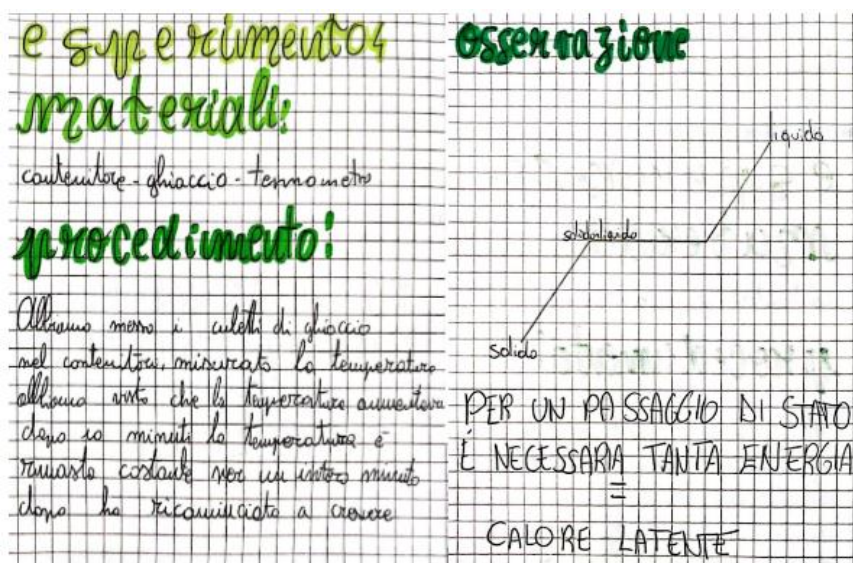 esperimento4
materiali:
contenitore - ghiaccio - termometro
procedimento:
Abbiamo messo i cubetti di ghiaccio
nel contenitore, misurato la temperatura
abbiamo visto che la temperatura aumentava
dopo 10 minuti la temperatura è
rimasta costante per un intero minuto
dopo ha ricominciato a crescere
osservazione
liquido
solido
PER UN PASSAGGIO DI STATO
É NECESSARIA TANTA ENERGIA
=
CALORE LATENTE